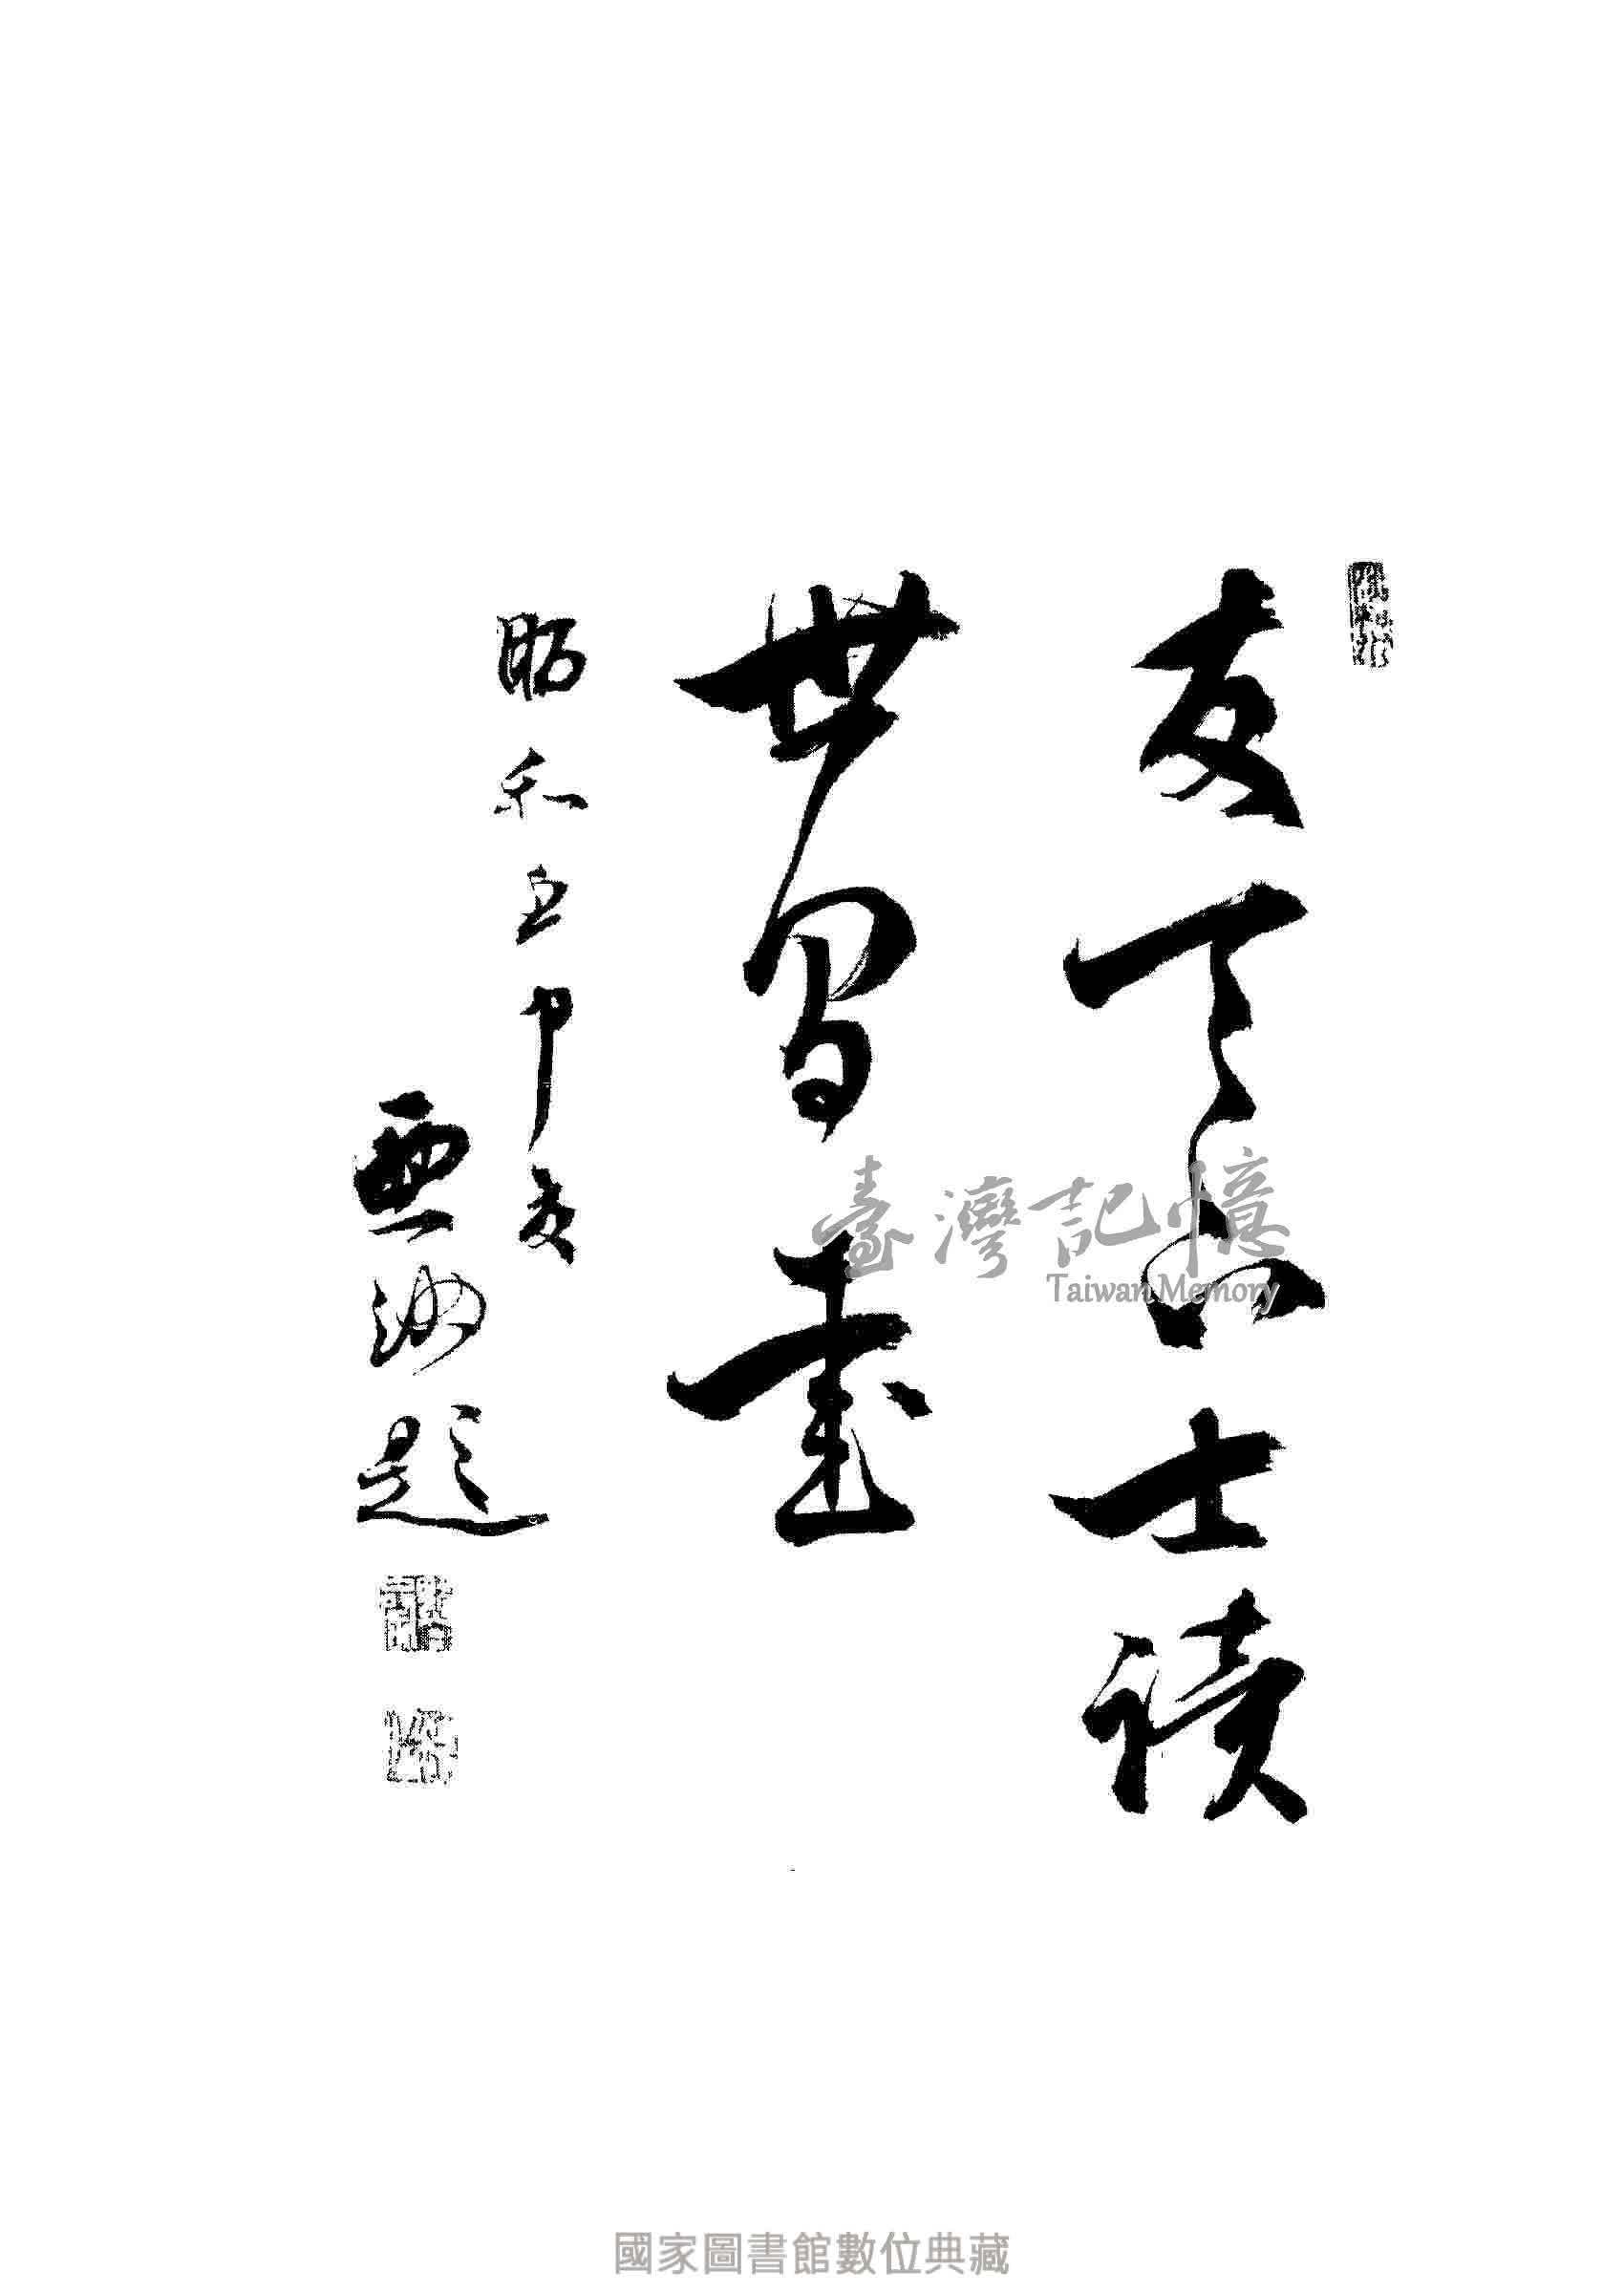 友天下士讀
世間書
昭和壬申夏
亞洲題
臺灣記憶
Taiwan Memory
國家圖書館數位典藏